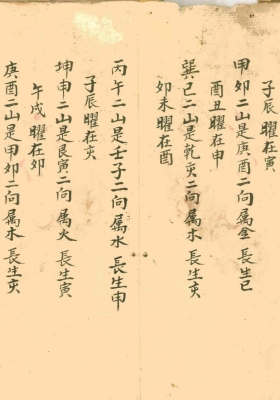 子辰曜在寅
甲卯二山是庚酉二向属金長生巳
酉丑曜在申
巽巳二山是乾亥二向属木長生亥
卯未曜在酉
丙午二山是壬子二向属水長生申
子辰曜在亥
坤申二山是艮寅二向属火長生寅
午戌曜在卯
庚酉二山是甲卯二向属木長生亥